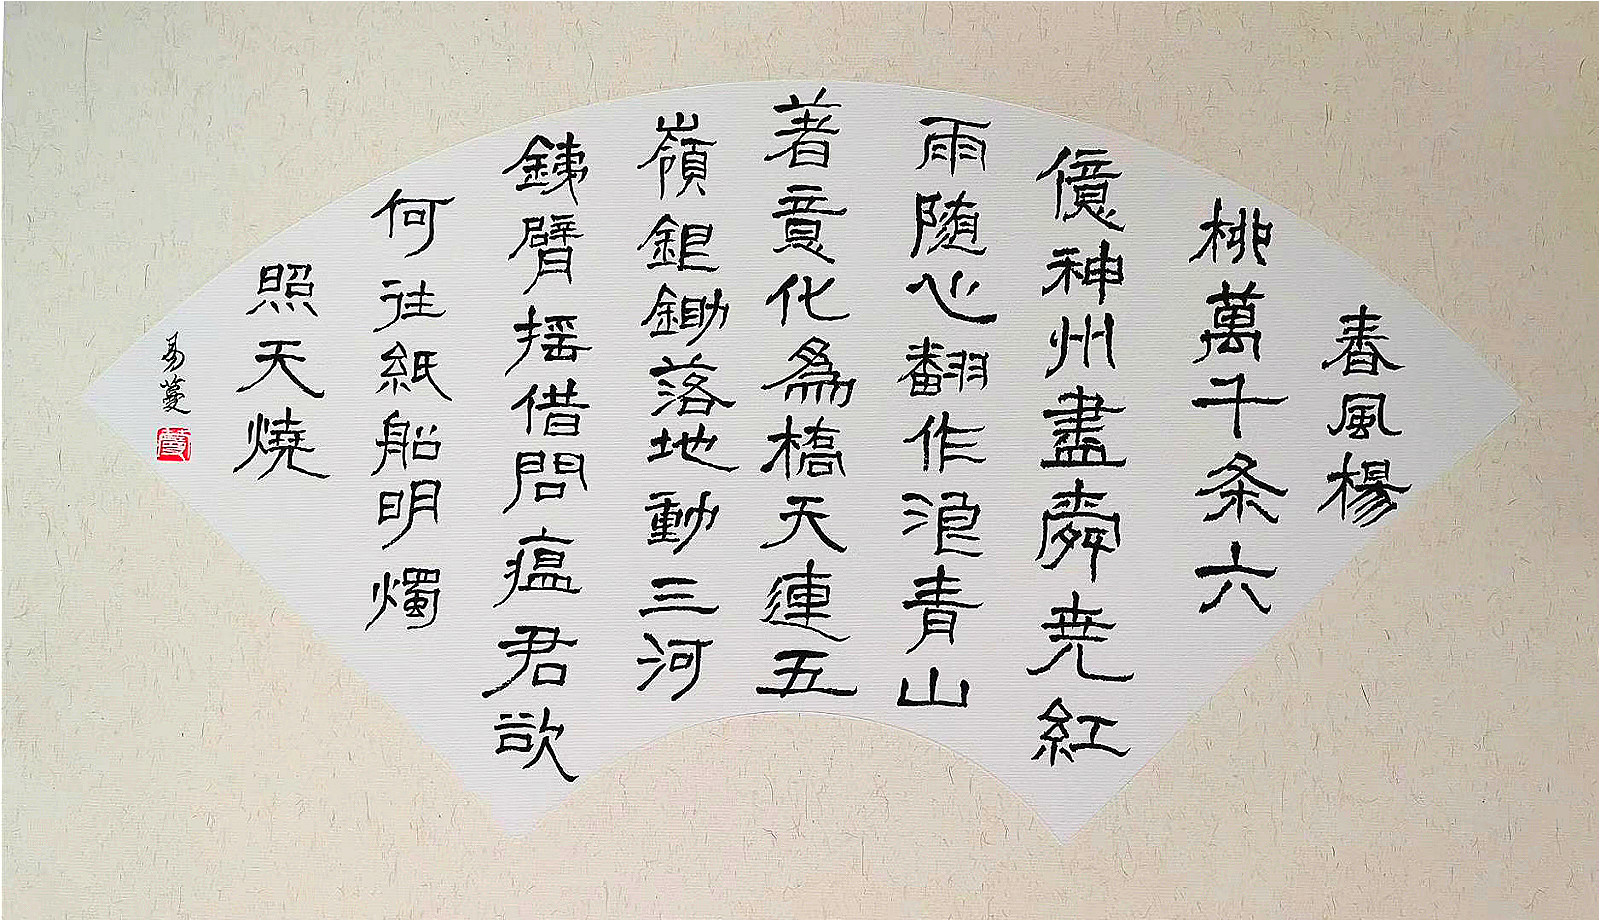 春風楊
柳萬千条六
億神州盡舜尭紅
雨随心翻作浪青山
著意化為橋天連五
嶺銀鋤落地動三河
銕臂揺借問瘟君欲
何往紙船明燭
照天燒
易蔓